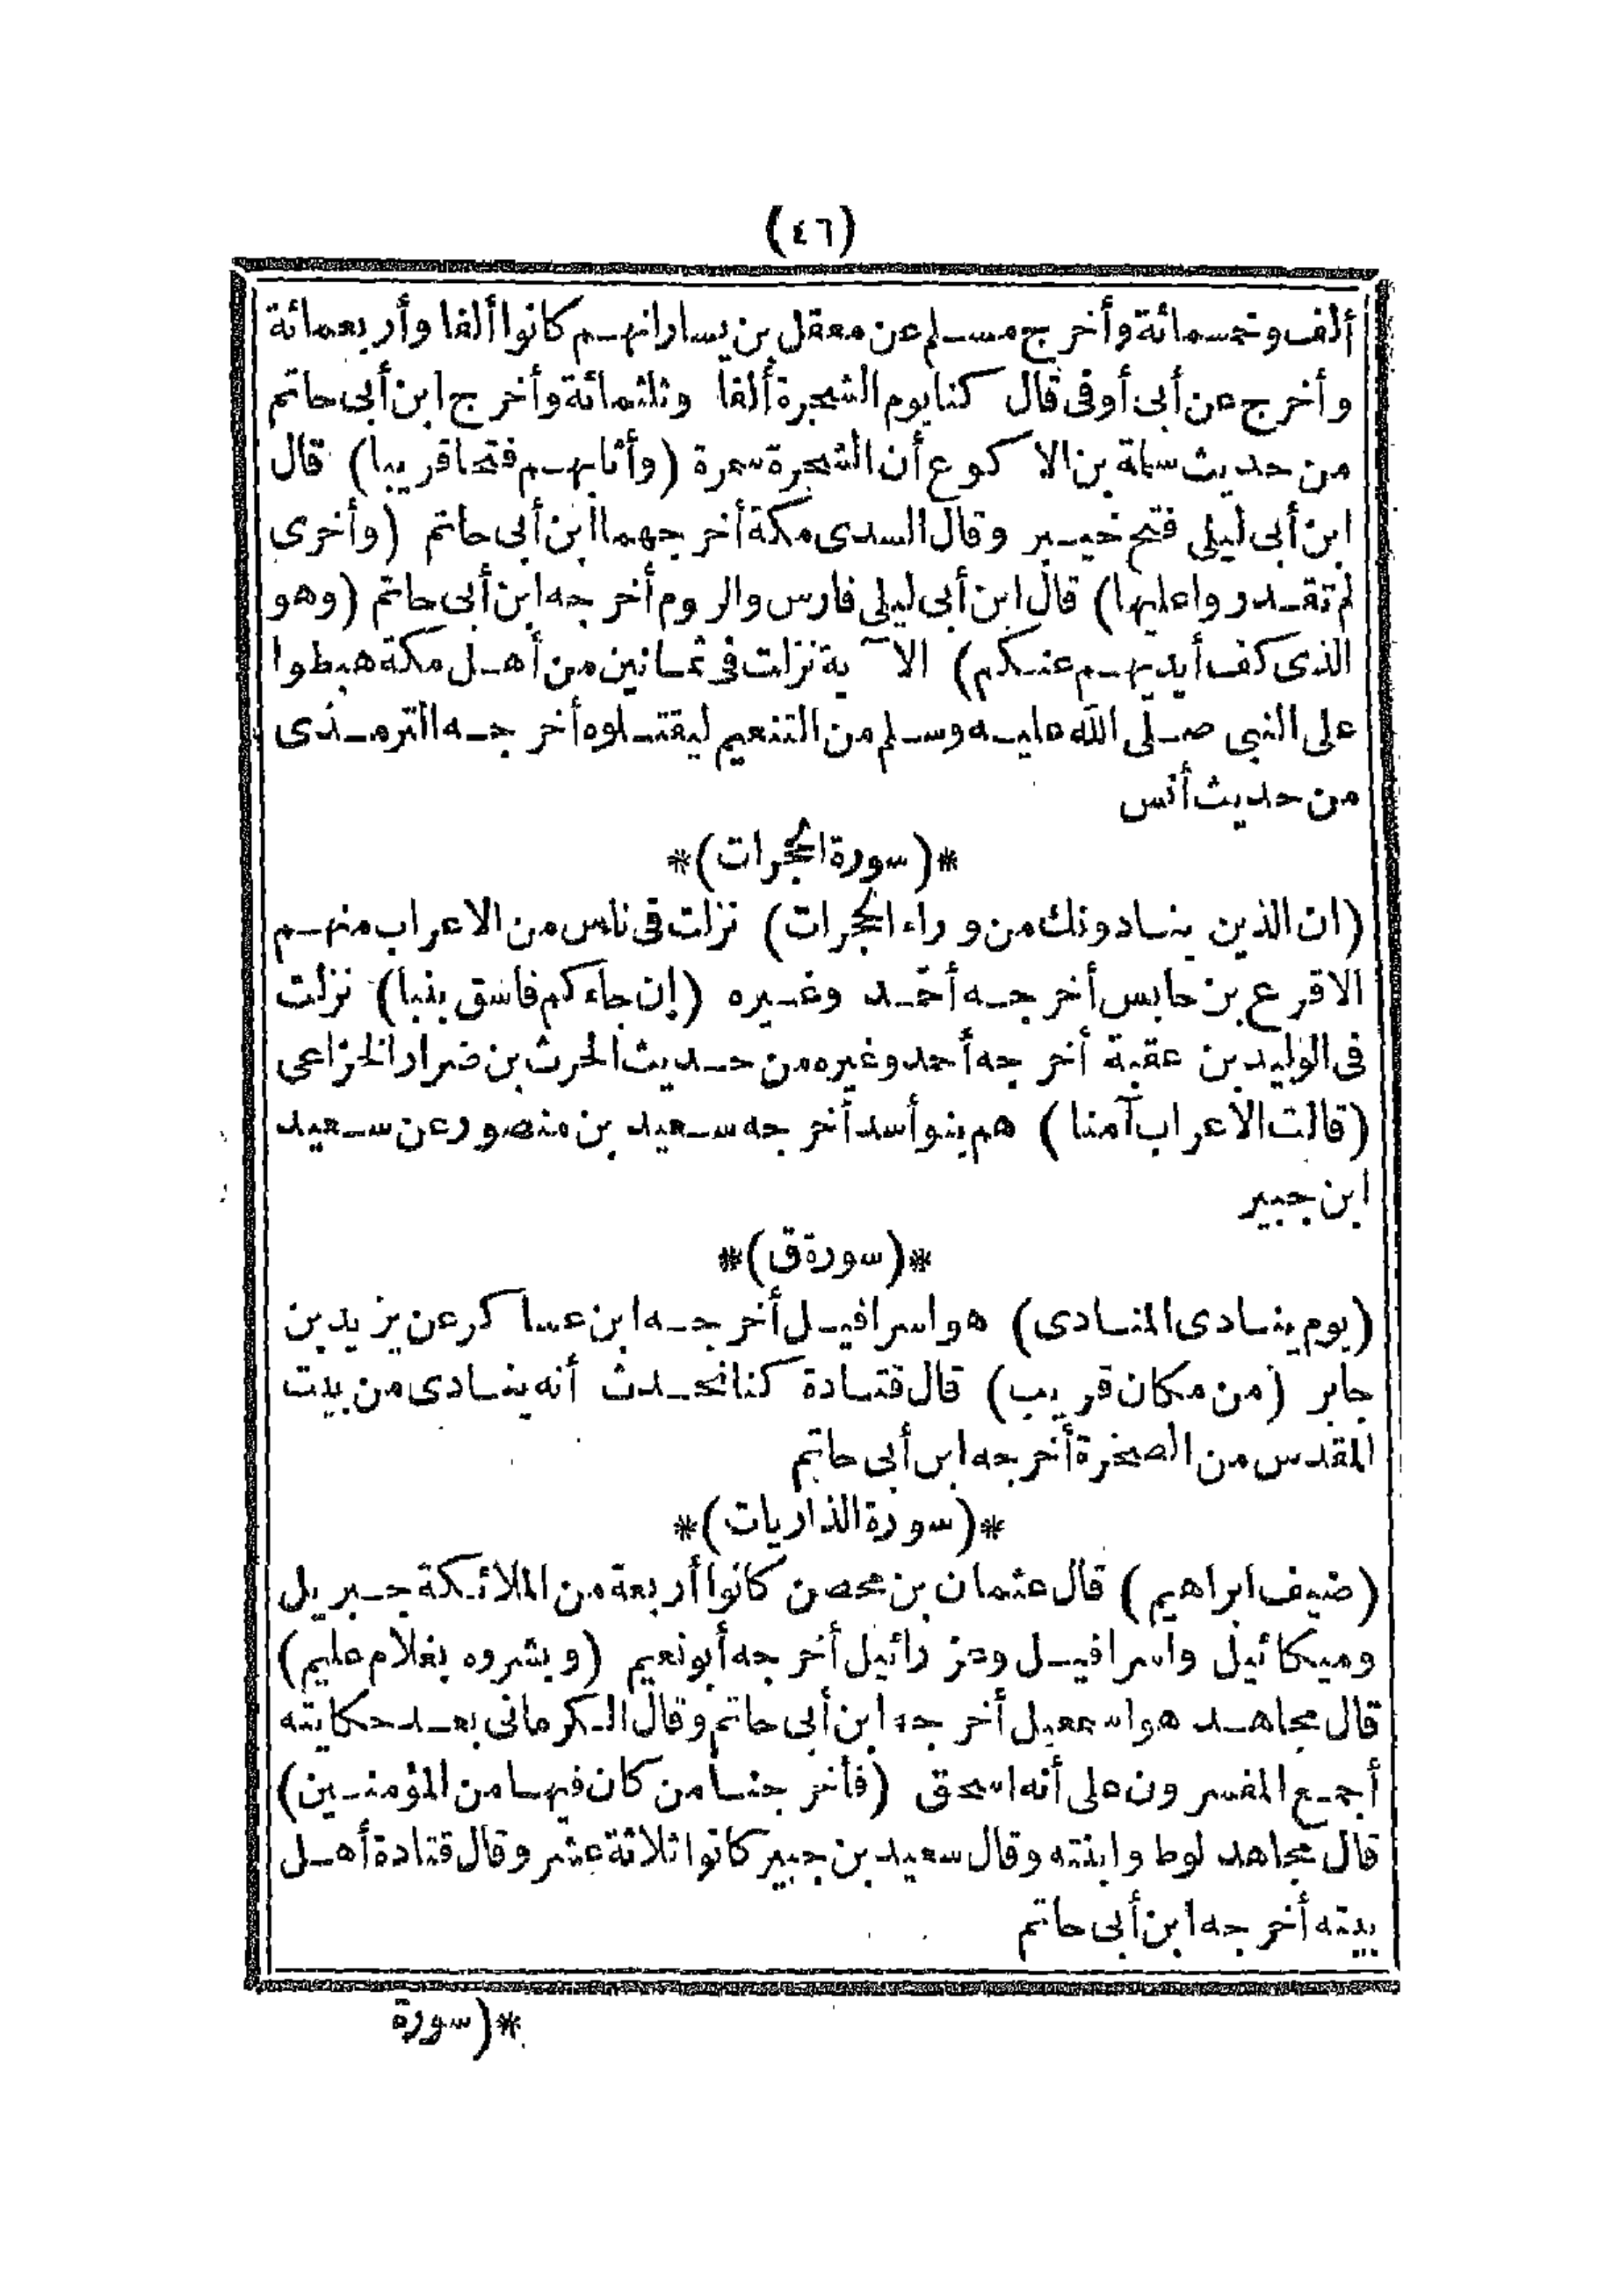 (٤٦)
ألف وخمسمائة وأخرج مسلم عن معقل بن يسار انهم كانوا ألفا وأربعمائة
وأخرج عن أبى أوفى قال كنا يوم الشجرة ألفا وثلثمائة وأخرج ابن أبى حاتم
من حديث سلمة بن الاكوع أن الشجرة سمرة (وأثابهم فتحا قريبا) قال
ابن أبى ليلى فتح خيبر وقال السدى مكة أخرجهما ابن أبى حاتم (وأخرى
لم تقدروا عليها) قال ابن أبى ليلى فارس والروم أخرجه ابن أبى حاتم (وهو
الذى كف أيديهم عنكم) الآية نزلت فى ثمانين من أهل مكة هبطوا
على النبى صلى الله عليه وسلم من التنعيم ليقتلوه أخرجه الترمذى
من حديث أنس
*(سورة الحجرات)*
(ان الذين ينادونك من وراء الحجرات) نزلت فى ناس من الاعراب منهم
الاقرع بن حابس أخرجه أحمد وغيره (إن جاءكم فاسق بنبا) نزلت
فى الوليد بن عقبة أخرجه أحمد وغيره من حديث الحرث بن ضرار الخزاعى
(قالت الأعراب آمنا) هم بنو أسد أخرجه سعيد بن منصور عن سعيد
ابن جبير
*(سورة ق)*
(يوم ينادى المنادى) هو اسرافيل أخرجه ابن عساكر عن يزيد بن
جابر (من مكان قريب) قال قتادة كنا نحدث أنه ينادى من بيت
المقدس من الصخرة أخرجه ابن أبى حاتم
*(سورة الذاريات)*
(ضيف ابراهيم) قال عثمان بن محصن كانوا أربعة من الملائكة جبريل
وميكائيل واسرافيل وعزرائيل أخرجه أبو نعيم (وبشروه بغلام عليم)
قال مجاهد هو اسمعيل أخرجه ابن أبى حاتم وقال الكرمانى بعد حكايته
أجمع المفسرون على أنه اسحق (فأخرجنا من كان فيها من المؤمنين)
قال مجاهد لوط وابنته وقال سعيد بن جبير كانوا ثلاثة عشر وقال قتادة أهل
بيته أخرجه ابن أبى حاتم
*(سورة